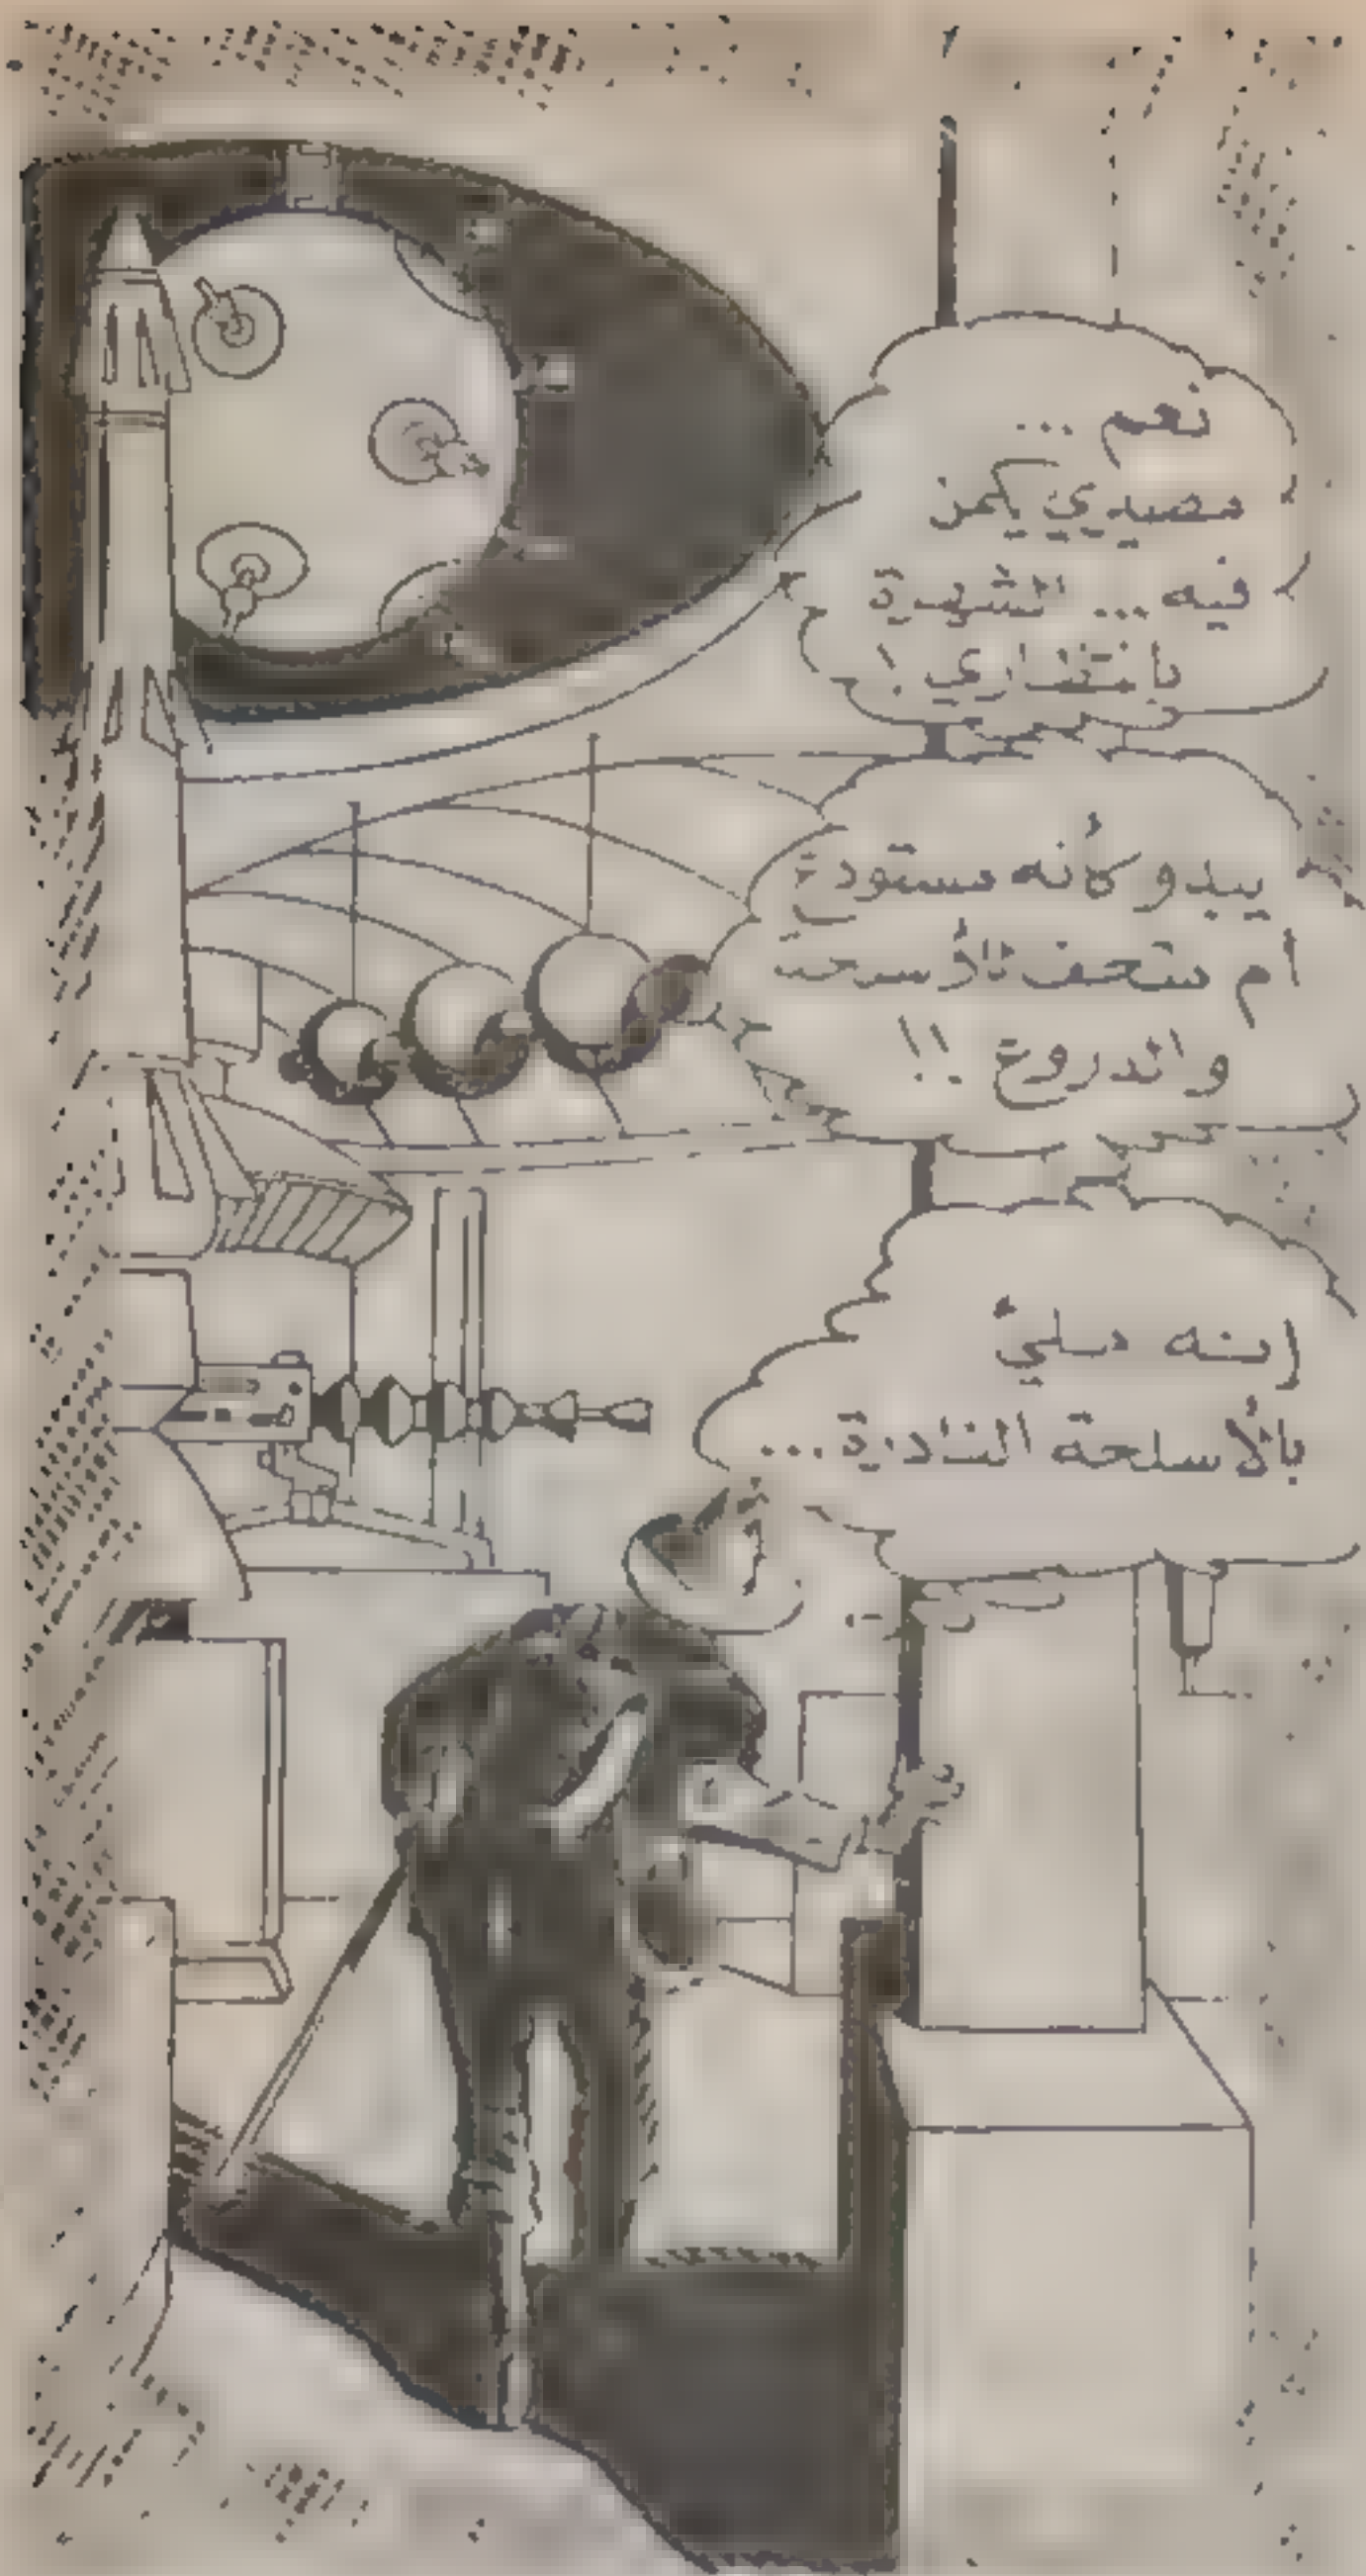 نعم ...
مصيري يكمن
فيه ... الشهرة
بانتظاري !
يبدو كأنه مستودع
أم متحف للأسلحة
والدروع !!
إنه مليئ
بالأسلحة النادرة ...